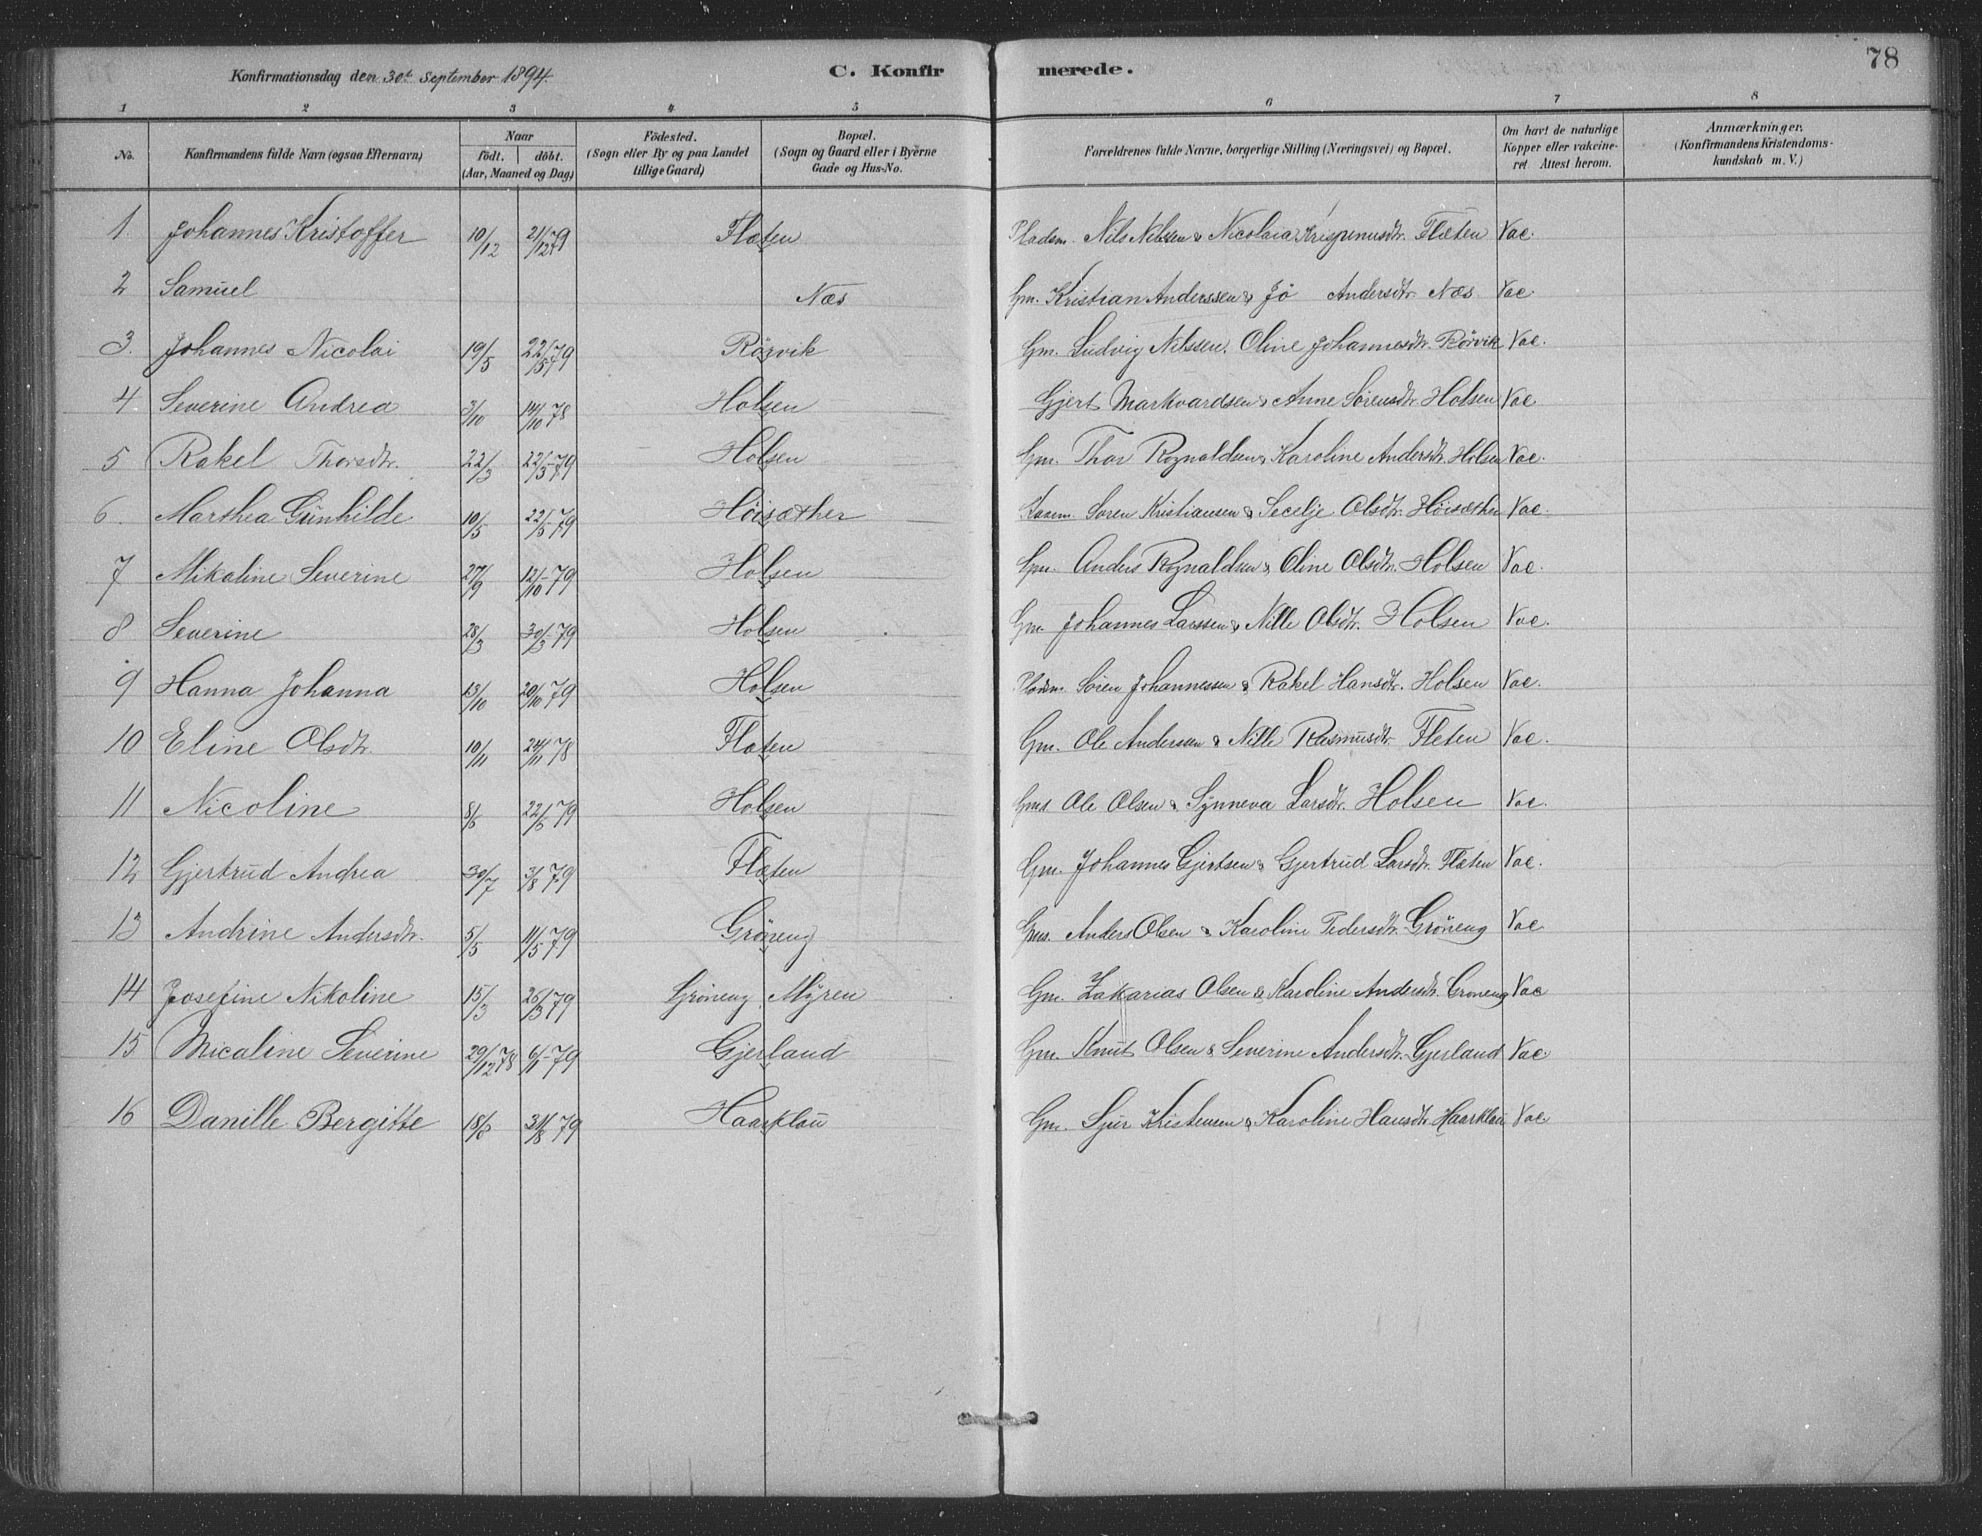 78
Konfirmationsdag den 30te September 1894. C. Konfirmerede.
1 2 3 4 5 6 7 8
No. Konfirmandens fulde Navn (ogsaa Efternavn) Naar födt. döbt. (Aar, Maaned og Dag) Födested. (Sogn eller By og paa Landet tillige Gaard) Bopæl. (Sogn og Gaard eller i Byerne Gade og Hus-No. Forældrenes fulde Navne, borgerlige Stilling (Næringsvei) og Bopæl. Om havt de naturlige Kopper eller vakcineret Attest herom. Anmærkninger. (Konfirmandens Kristendomskundskab m. V.)
1 Johannes Kristoffer 10/12 21/12 79 Flæten Pladsm. Nils Nilsen & Nicolaia Krispinusdtr. Flæten Vac.
2 Samuel Næs Gm. Kristian Anderssen & Jø Andersdtr. Næs Vac.
3. Johannes Nicolai 19/5 22/5 79 Rörvik Gm. Ludvig Nilssen. Oline Johannesdtr. Rörvik Vac.
4 Severine Andrea 3/10 14/10 78 Holsen Gjert Markvardsen & Anne Sörensdtr. Holsen Vac
5 Rakel Thorsdtr. 22/3 22/5 79 Holsen Gm. Thor Rognaldsen & Karoline Andersdtr. Holsen Vac.
6. Marthea Gunhilde 10/5 22/5 79 Höisæther Sören Kristiansen & Secelje Olsdtr. Höisæther Vac.
7 Mikaline Severine 27/9 12/10 79 Holsen Gm. Anders Rognaldsen & Oline Olsdtr. Holsen Vac.
8 Severine 28/3 30/3 79 Holsen Gm. Johannes Larssen & Nille Olsdtr. Holsen Vac.
9 Hanna Johanna 13/10 20/10 79 Holsen Pladsm. Sören Johannessen & Rakel Hansdtr. Holsen Vac.
10 Eline Olsdtr. 10/11 24/11 78 Flæten Gm. Ole Andersen & Nille Rasmusdtr. Fleten Vac.
11 Nicoline 8/6 22/6 79 Holsen Gms. Ole Olsen & Synneva Larsdtr. Holsen Vac.
12 Gjertrud Andrea 30/7 3/8 79 Flæten Gm. Johannes Gjertsen & Gjertrud Larsdtr. Flæten Vac.
13 Andrine Andersdtr. 5/5 11/5 79 Gröneng Gms. Anders Olsen & Karoline Pedersdtr. Gröneng Vac
14 Josefine Nikoline 15/3 26/3 79 Gröneng Myren Gm. Zakarias Olsen & Karoline Andersdtr. Gröneng Vac
15 Micaline Severine 29/12 78 6/1 79 Gjerland Gm. Knut Olsen & Severine Andersdtr. Gjerland Vac
16 Danille Bergitte 18/8 31/8 79 Haarklau Gm. Sjur Kristensen & Karoline Hansdtr. Haarklau Vac